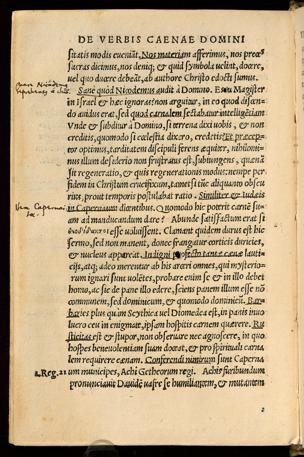 DE VERBIS CAENAE DOMINI
sitatis modis eveniāt. Nos materiam afferimus, nos precēs
sacras dicimus, nos deniq; & quid symbola velint, docere,
vel quo duce debeāt, ab authore Christo edocti sumus.
Sanè quod Niodemus audit à Domino. Es tu Magister
in Israel & hæc ignoras? non arguitur, in eo quod disan-
do avidus erat, sed quod carnalem sectabatur intelligētiam
Vnde & subditur à Domino, si terrena dixi vobis, & non
creditis, quomodo si cælestia dicero, credetis?
optimus, tarditatem discipuli ferens æquiter, nihilomi-
nus illum desiderio non frustratus est, subiungens, quænā
sit regeneratio, & quis regenerationis modus: nempe per
fidem in Christum crucifixum, tametsi tūc aliquanto obscu
rius, prout temporis postulabat ratio. Similiter & Iudæis
in Capernaum dicentibus. Quomodo hic poterit carnē su-
am ad manducandum dare? Abunde satisfactum erat si
esse voluissent. Clamant quidem durus est hic
sermo, sed non manent, donec frangatur corticis durities,
& nucleus appareat. Indigni profecto tantæ cænæ lauti-
cijs, atq; adeo merentur ab his arceri omnes, qui mysterio-
rum ignari sunt
homo, ac sic de pane illo edere, sciens panem illum esse nō
communem, sed dominicum, & quomodo dominicū. Bar-
baries plus quàm Scythica vel Diomedea est, in panis invo
lucro ceu in enigmate, ipsam hospitis carnem quærere. Ru
sticitas est & stupor, non observare nec agnoscere, in quo
hospes benevolentiam suam doceat, & pro spirituali carna
lem requirere cænam. Conferendi nimirum sunt Caperna
2. Reg. 21 um municipes, Achis Getheorum regi. Achis furibundum
pronunciavit Davidē vafre se humiliantem, & mutantem